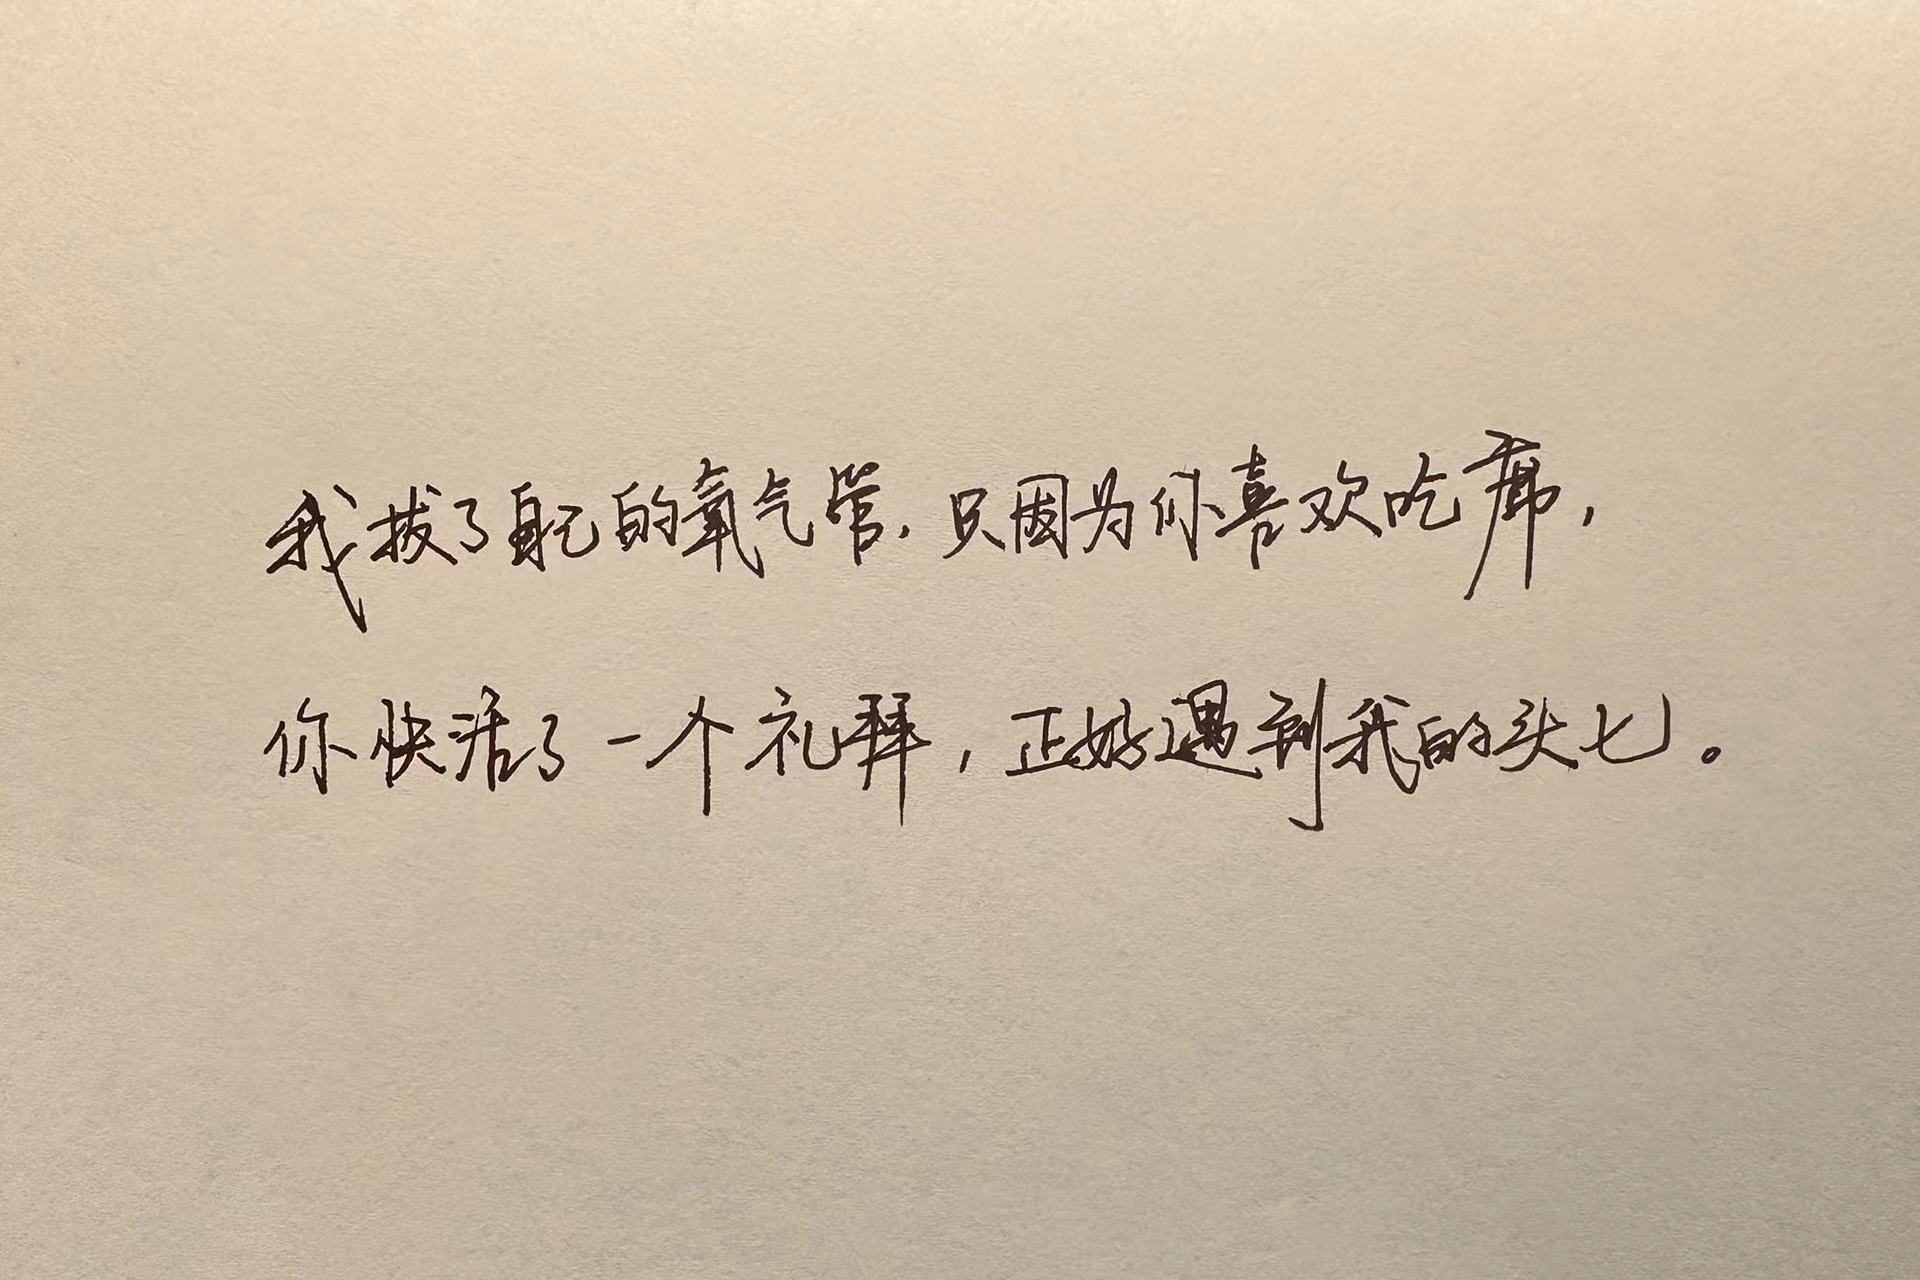 我拔了自己的氧气管，只因为你喜欢吃席，
你快活了一个礼拜，正好遇到我的头七。